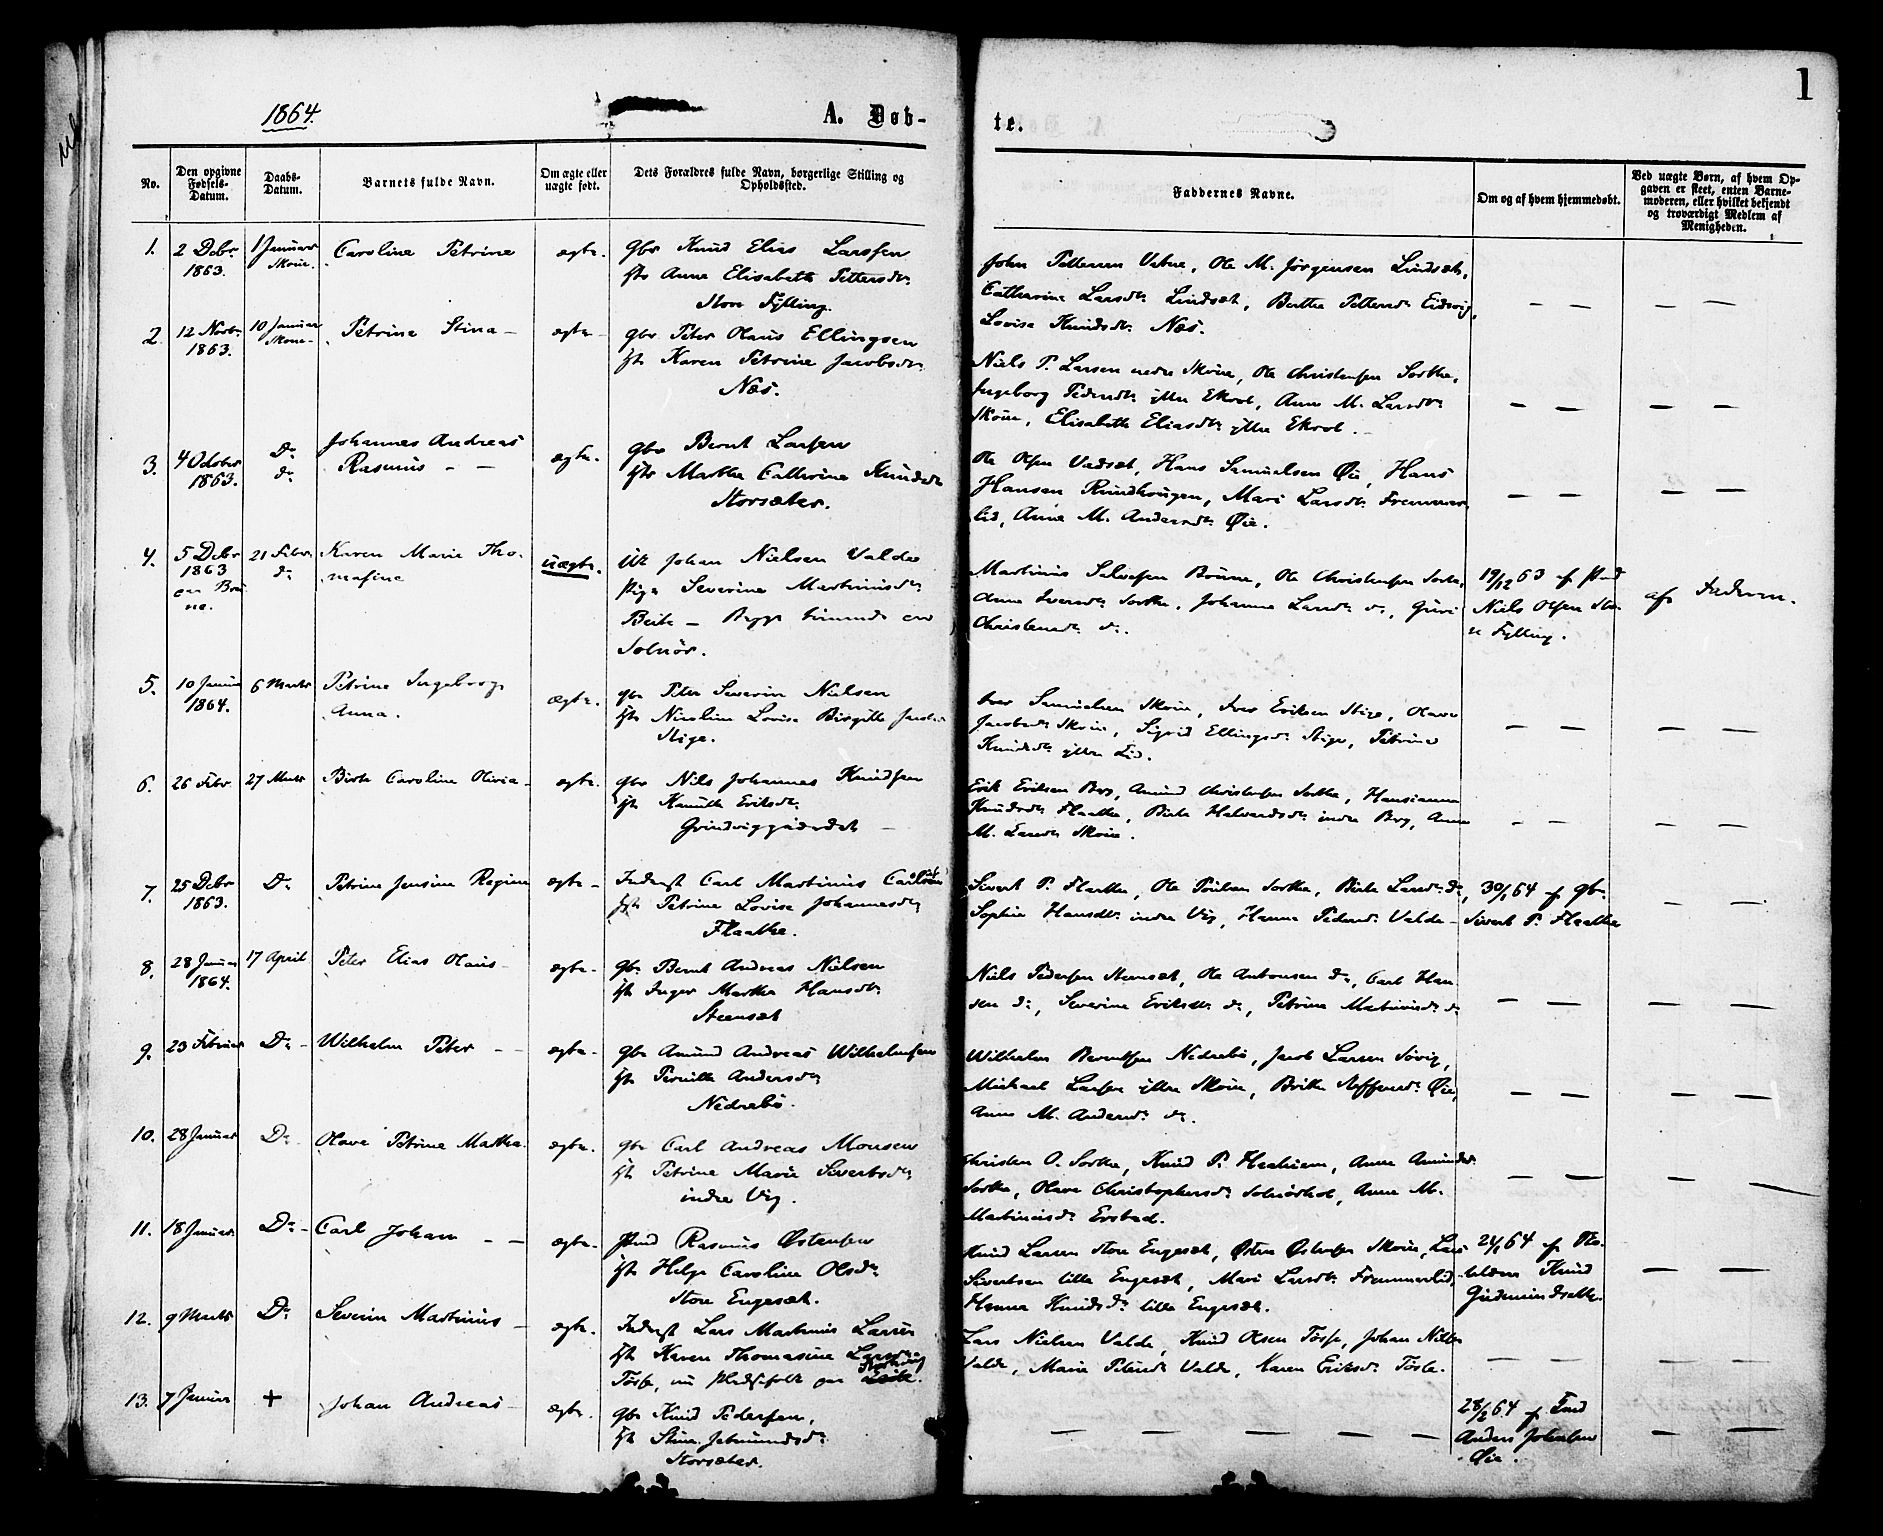 1864.
A. Døb-
te.
1
No.
Den opgivne
Fødsels-
Datum.
Daabs-
Datum.
Barnets fulde Navn.
Om ægte eller
uægte født.
Dets Forældres fulde Navn, borgerlige Stilling og
Opholdssted.
Faddernes Navne.
Om og af hvem hjemmedøbt.
Ved uægte Børn, af hvem Op-
gaven er skeet, enten Barne-
moderen, eller hvilket bekjendt
og troværdigt Medlem af
Menigheden.
1. 2 Debr 1 Januar Caroline Petrine ægte. gbr Knud Elias Larssen
1863. Skoue. Anne Elisabeth Pettersdr
Store Fylling.
John Pettersen Vatne, Ole M. Jørgensen Lindsæt,
Catharine Larsdr Lindsæt, Berthe Pettersdr Eidsvig,
Lovise Knudsdr Næs.
2 12 Novbr 10 Januar Petrine Stina ægte gbr Peter Olaus Ellingsen
1863. Skoue Karen Petrine Jacobsdr
Næs.
Niels P. Larsen nedre Skoue, Ole Christensen Sorthe,
Ingeborg Pedersdr ytre Ekrol, Anne M. Larsdr
Skoue, Elisabeth Eliasdr ytre Ekrol.
3. 4 Octobr Do Johannes Andreas ægte. gbr Bernt Larsen
1863. do Rasmus Marthe Cathrine Knudsdr
Storsæter.
Ole Olsen Vadsæt, Hans Samuelsen Øie, Hans
Hansen Rundhougen, Mari Larsdr Fremmer-
lid, Anne M. Andersdr Øie.
4. 5 Debr 21 Febr. Karen Marie Tho- uægte. Johan Nielsen Valde
1863 do masine Pige Severine Martinusdr
Begge
Solnør.
Martinus Salvesen Brune, Ole Christensen Sorthe,
Anne Iversdr Sorthe, Johanne Larsdr do, Guri
Christensdr do.
19/12 63 af
Niels Olsen Sto-
re Fylling.
af Faderen.
5. 10 Januar 6 Marts Petrine Ingeborg ægte. gbr Peter Severin Nielsen
1864. Anna. Nicoline Lovise Birgitte
Stige.
Iver Samuelsen Skoue, Iver Eriksen Stige, Olave
Jacobsdr Skoue, Sigrid Ellingsdr Stige, Petrine
Knudsdr ytre Lid.
6. 26 Febr 27 Marts Birte Caroline Olivia ægte. gbr Nils Johannes Knudsen
Eriksdr
Erik Eriksen Berg, Amund Christensen Sorthe, Hansianna
Knudsdr Flaathe, Birte Halvardsdr indre Berg, Anne
M. Larsdr Skoue.
7. 25 Debr Do Petrine Jensine Regine ægte Inderst Carl Martinus
1863. Petrine Lovise Johannesdr
Flaathe.
Sivert P. Flaathe, Ole Poulsen Sorthe, Birte Larsdr do,
Sophie Hansdr indre Vig, Hanna Pedersdr Valde
30/1 64 af gbr
Sivert P. Flaathe
8. 28 Januar 17 April Peter Elias Olaus ægte. gbr Bernt Andreas Nielsen
1864. Inger Marthe Hansdr
Steensæt
Niels Pedersen Steensæt, Ole Antonsen do, Carl Han-
sen do, Severine Eriksdr do, Petrine Martinusdr do
9. 23 Februar Do Wilhelm Peter ægte. gbr Amund Andreas Wilhelmsen
Pernille Andersdr
Nedrebø.
Wilhelm Berntsen Nedrebø, Jacob Larsen Søvig,
Michael Larsen ytre Skoue, Brithe Steffensdr Øie,
Anne M. Andersdr do
10. 28 Januar Do Olave Petrine Marthe. ægte. gbr Carl Andreas Monsen
Petrine Marie Sivertsdr
indre Vig.
Christen O. Sorthe, Knud P. Haahiem, Anne Amundsdr
Sorthe, Olave Christophersdr Solnørhol, Anne M.
Martinusdr Erstad.
11. 18 Januar Do Carl Johan ægte. Rasmus Østensen
Helge Caroline Olsdr
Store Engesæt.
Knud Larsen Store Engesæt, Østen Østensen Skoue, Lars
Sivertsen lille Engesæt, Mari Larsdr Fremmerlid,
Hanna Knudsdr lille Engesæt.
24/1 64 af
Knud
12. 9 Marts Do Severin Martinus ægte. Inderst Lars Martinus Larsen
Karen Thomasine Larsdr
Tøsse, nu Pladsfolk paa
Lars Nielsen Valde, Knud Olsen Tøsse, Johan Nils.
Valde, Marie Petersdr Valde, Karen Eriksdr Tøsse.
13. 7 Januar + Johan Andreas ægte. gbr Knud Pedersen,
Stine Jetmundsdr
Storsæter.
28/2 64 af
Anders Johnsen
Øie.